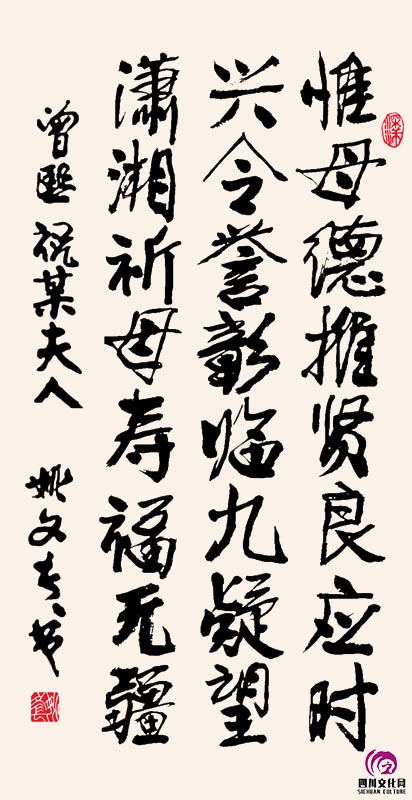 惟母德推贤良应时
兴令誉彰临九疑望
潇湘祈母寿福无疆
曾熙 祝某夫人
姚文长书
四川文化网
SICHUAN CULTURE